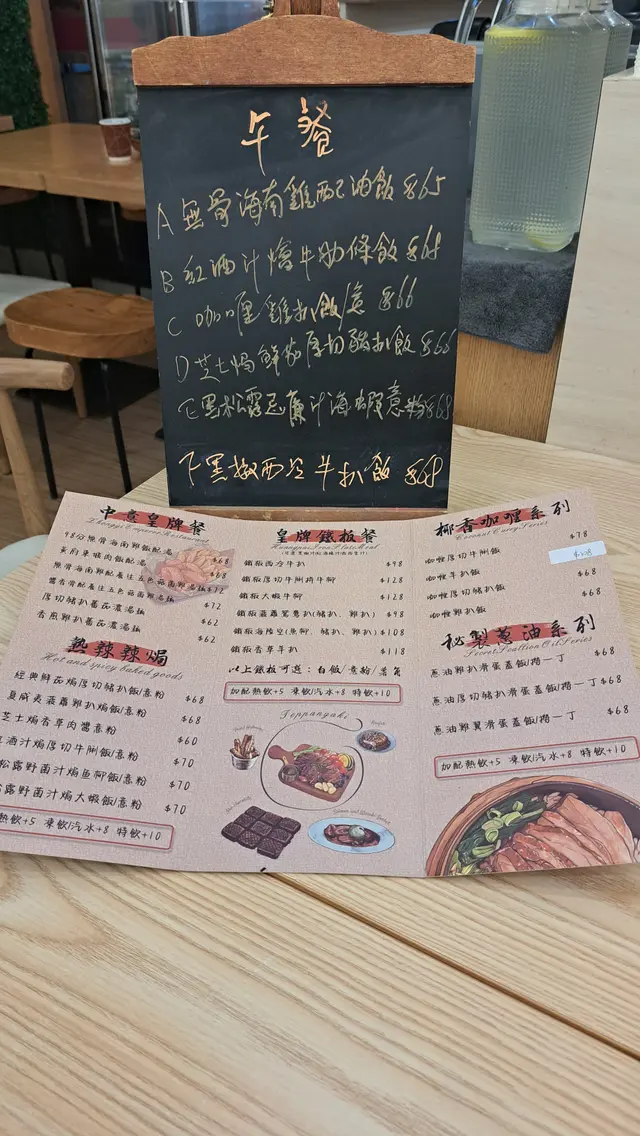 午餐
A 無骨海南雞配油飯 $65
B 紅酒汁燴牛肋條飯 $64
C 咖喱雞扒飯/意 $66
D 芝士焗鮮茄厚切豬扒飯 $66
E 黑松露忌廉汁海蝦意粉 $68
F 黑椒西冷牛扒飯 $68
中意皇牌餐
98分無骨海南雞飯配湯
$68
$68
$72
$72
厚切豬扒蕃茄濃湯
$62
香煎雞扒蕃茄濃湯
$62
熱辣辣焗
Hot and spicy baked goods
經典鮮茄焗厚切豬扒飯/意粉 $68
夏威夷菠蘿雞扒焗飯/意粉 $68
芝士焗香草肉醬意粉 $60
酒汁焗厚切牛脷飯/意粉 $70
松露野菌汁焗魚柳飯/意粉 $70
露野菌汁焗大蝦飯/意粉 $70
熱飲+5 凍飲/汽水+8 特飲+10
皇牌鐵板餐
鐵板西冷牛扒 $98
鐵板厚切牛脷拼牛柳 $128
鐵板大蝦牛柳 $128
鐵板菠蘿鴛鴦扒(豬扒、雞扒) $98
鐵板海陸空(魚柳、豬扒、雞扒) $108
鐵板香草羊扒 $118
以上鐵板可選：白飯/意粉/薯角
加配熱飲+5 凍飲/汽水+8 特飲+10
Teppanyaki
椰香咖喱系列
Coconut Curry Series
咖喱厚切牛脷飯 $78
咖喱羊扒飯
咖喱厚切豬扒飯 $68
咖喱雞扒飯 $68
秘製蔥油系列
Secret Scallion Oil Series
蔥油雞扒滑蛋蓋飯/撈一丁 $68
蔥油厚切豬扒滑蛋蓋飯/撈一丁 $68
蔥油雞翼滑蛋蓋飯/撈一丁 $68
加配熱飲+5 凍飲/汽水+8 特飲+10